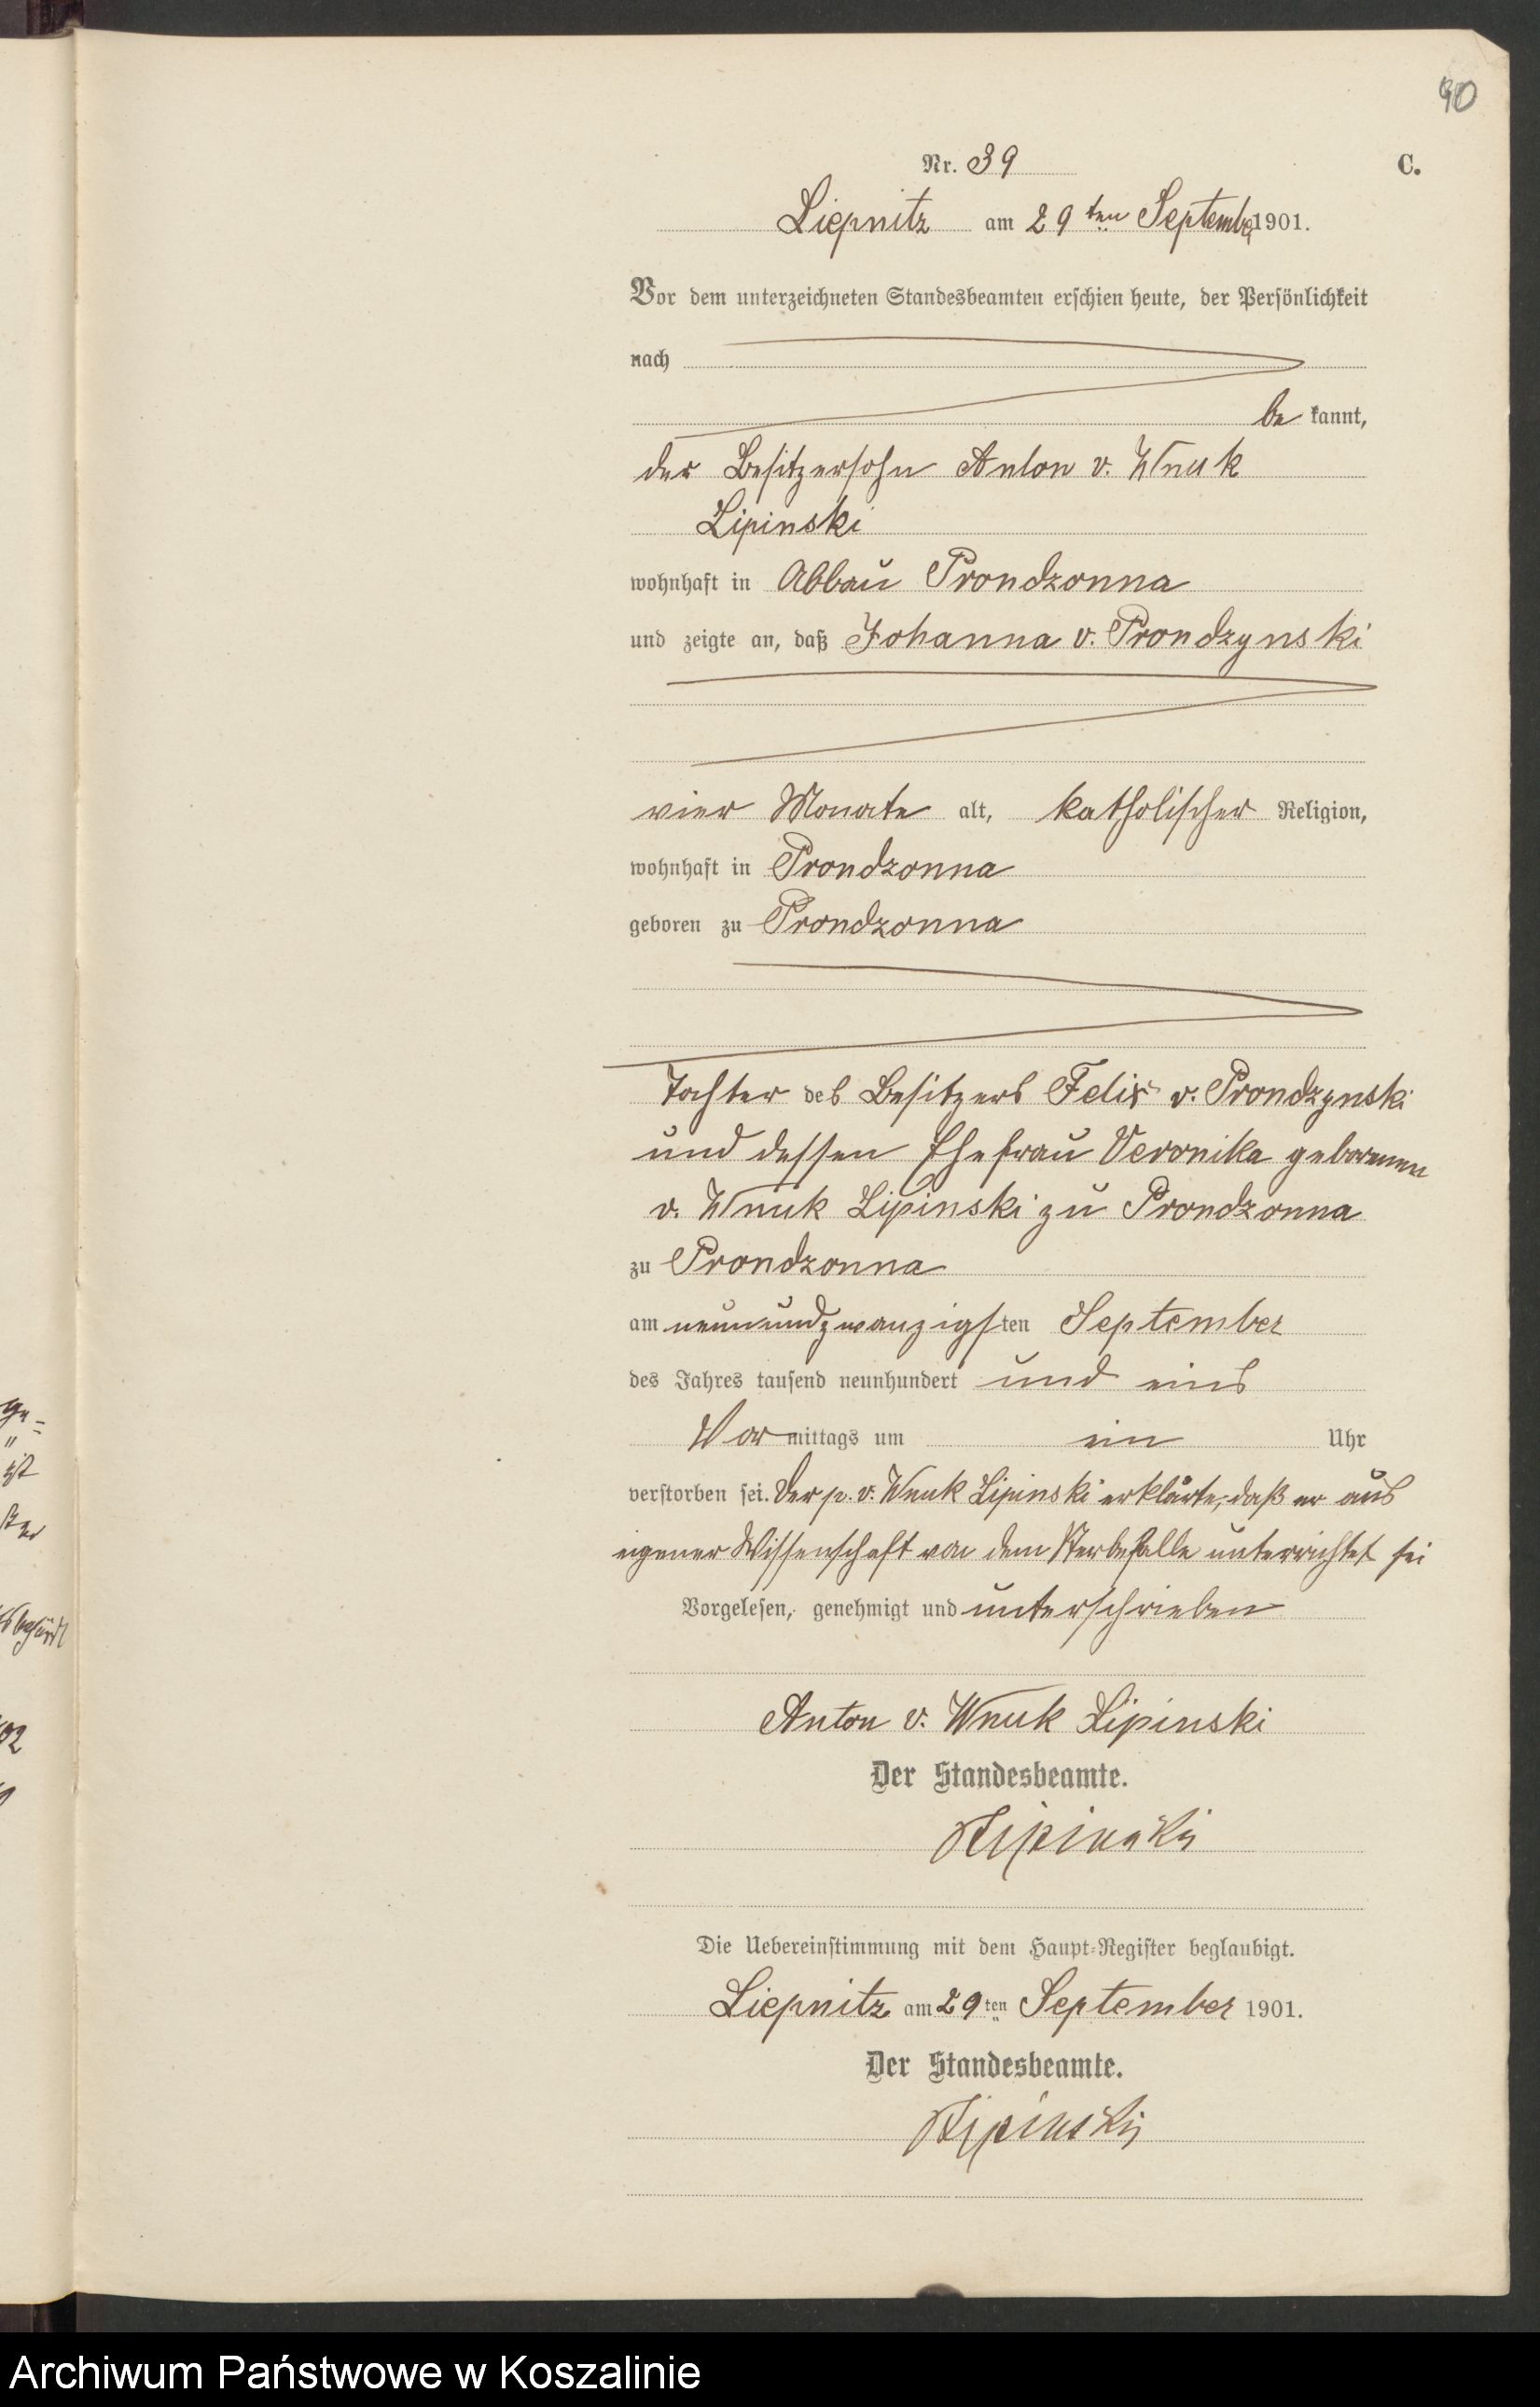 90
Nr. 39
C.
Liepnitz am 29ten September 1901.
Vor dem unterzeichneten Standesbeamten erschien heute, der Persönlichkeit
nach
be kannt,
der Besitzersohn Anton v. Wnuk
Lipinski
wohnhaft in Abbau Prondzonna
und zeigte an, daß Johanna v. Prondzynski
vier Monate alt, katholischer Religion,
wohnhaft in Prondzonna
geboren zu Prondzonna
Tochter des Besitzers Felix v. Prondzynski
und dessen Ehefrau Veronika geborenen
v. Wnuk Lipinski zu Prondzonna
zu Prondzonna
am neunundzwanzigsten September
des Jahres tausend neunhundert und eins
Vor mittags um ein Uhr
verstorben sei. Der p. v. Wnuk Lipinski erklärte, daß er aus
eigener Wissenschaft von dem Sterbefalle unterrichtet sei
Vorgelesen, genehmigt und unterschrieben
Anton v. Wnuk Lipinski
Der Standesbeamte.
Lipinski
Die Uebereinstimmung mit dem Haupt-Register beglaubigt.
Liepnitz am 29ten September 1901.
Der Standesbeamte.
Lipinski
Archiwum Państwowe w Koszalinie